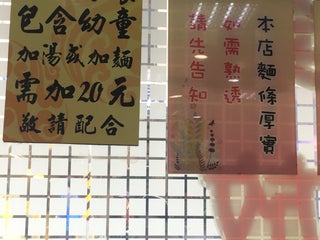 包含幼童
加湯或加麵
需加20元
敬請配合
本店麵條厚實
如需熟透
請先告知